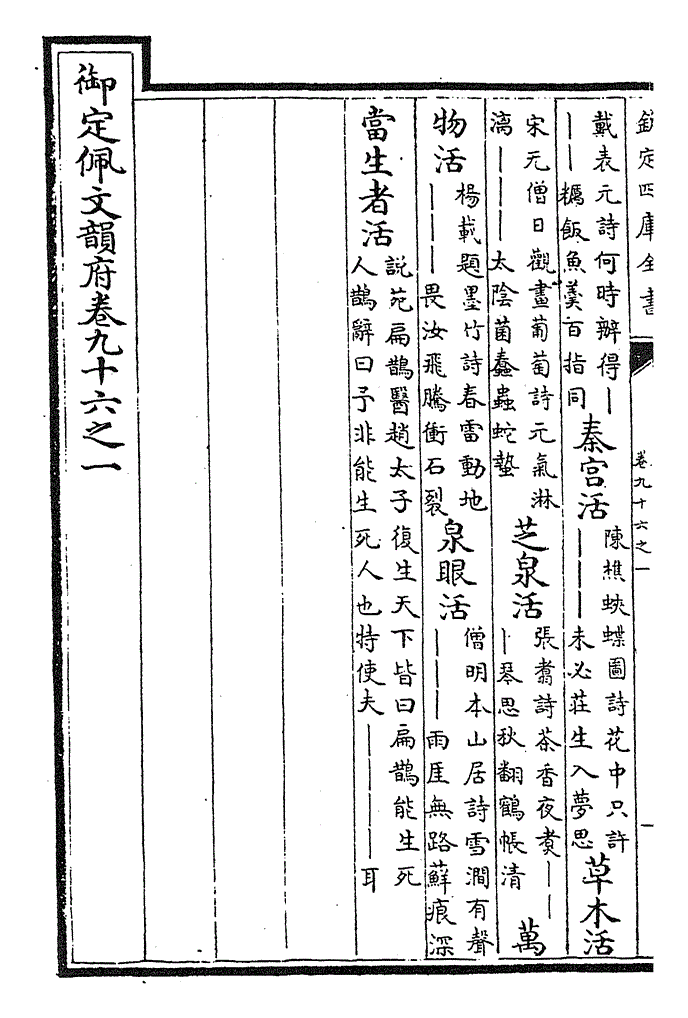 欽定四庫全書
卷九十六之一
戴表元詩何時辦得｜
｜｜糲飯魚羹百指同
秦宮活
陳樵蛺蝶圖詩花中只許
｜｜｜未必莊生入夢思
草木活
宋元僧日觀畫葡萄詩元氣淋
漓｜｜｜太陰菌蠢蟲蛇蟄
芝泉活
張翥詩茶香夜煑｜｜
｜琴思秋翻鶴帳清
萬
物活
楊載題墨竹詩春雷動地
｜｜｜畏汝飛騰衝石裂
泉眼活
僧明本山居詩雪澗有聲
｜｜｜雨厓無路蘚痕深
當生者活
說苑扁鵲醫趙太子復生天下皆曰扁鵲能生死
人鵲辭曰予非能生死人也特使夫｜｜｜｜耳
御定佩文韻府卷九十六之一